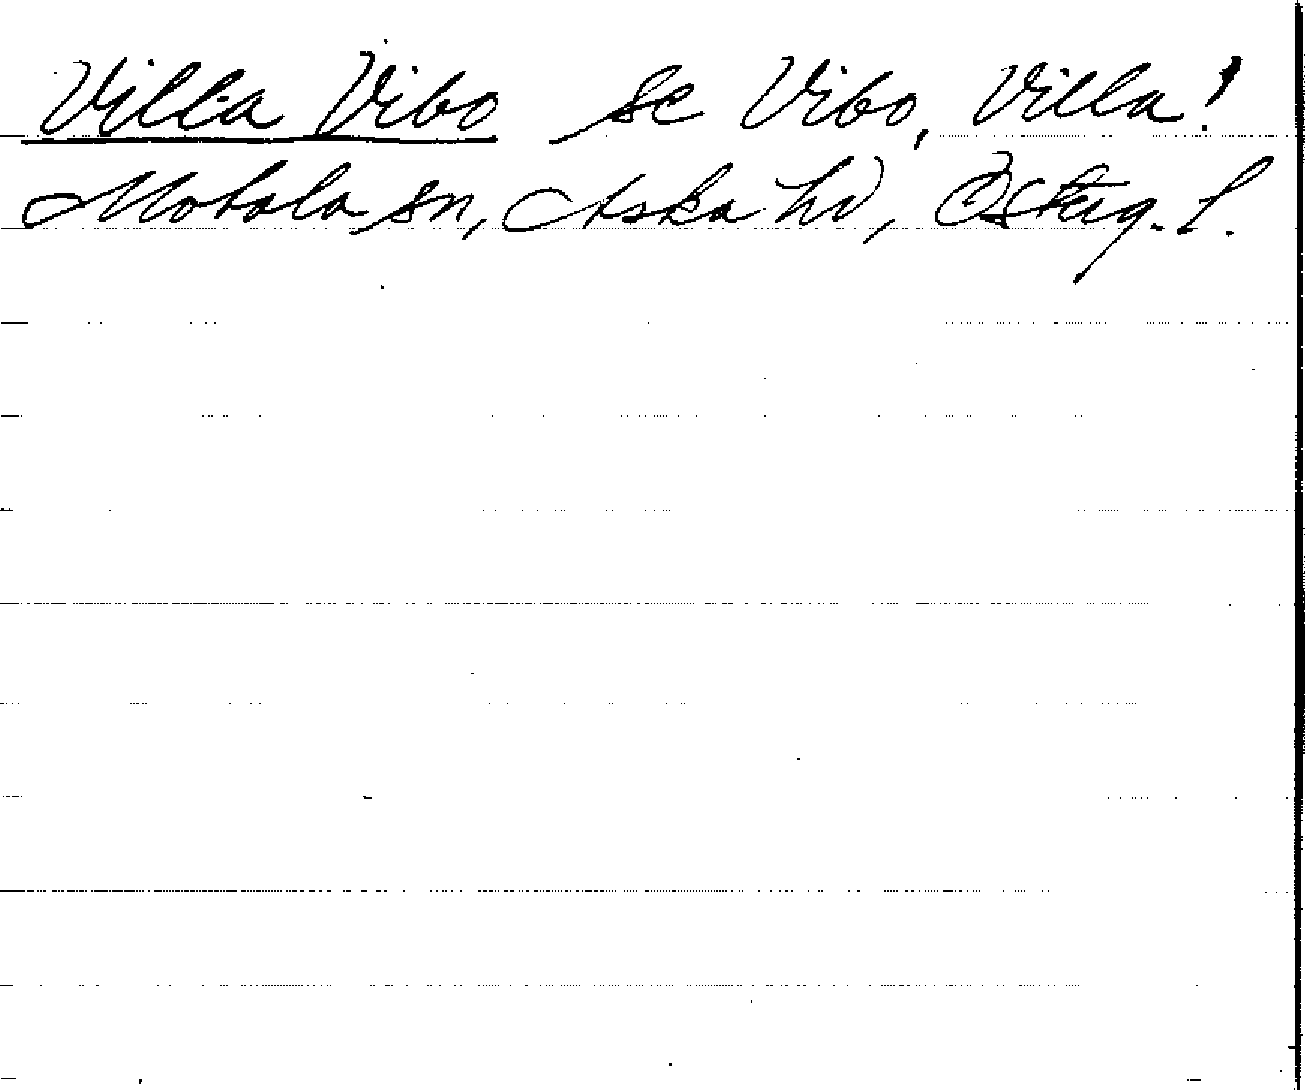 Villa Vibo se Vibo, Villa!
Motala sn, Aska hd, Österg. l.